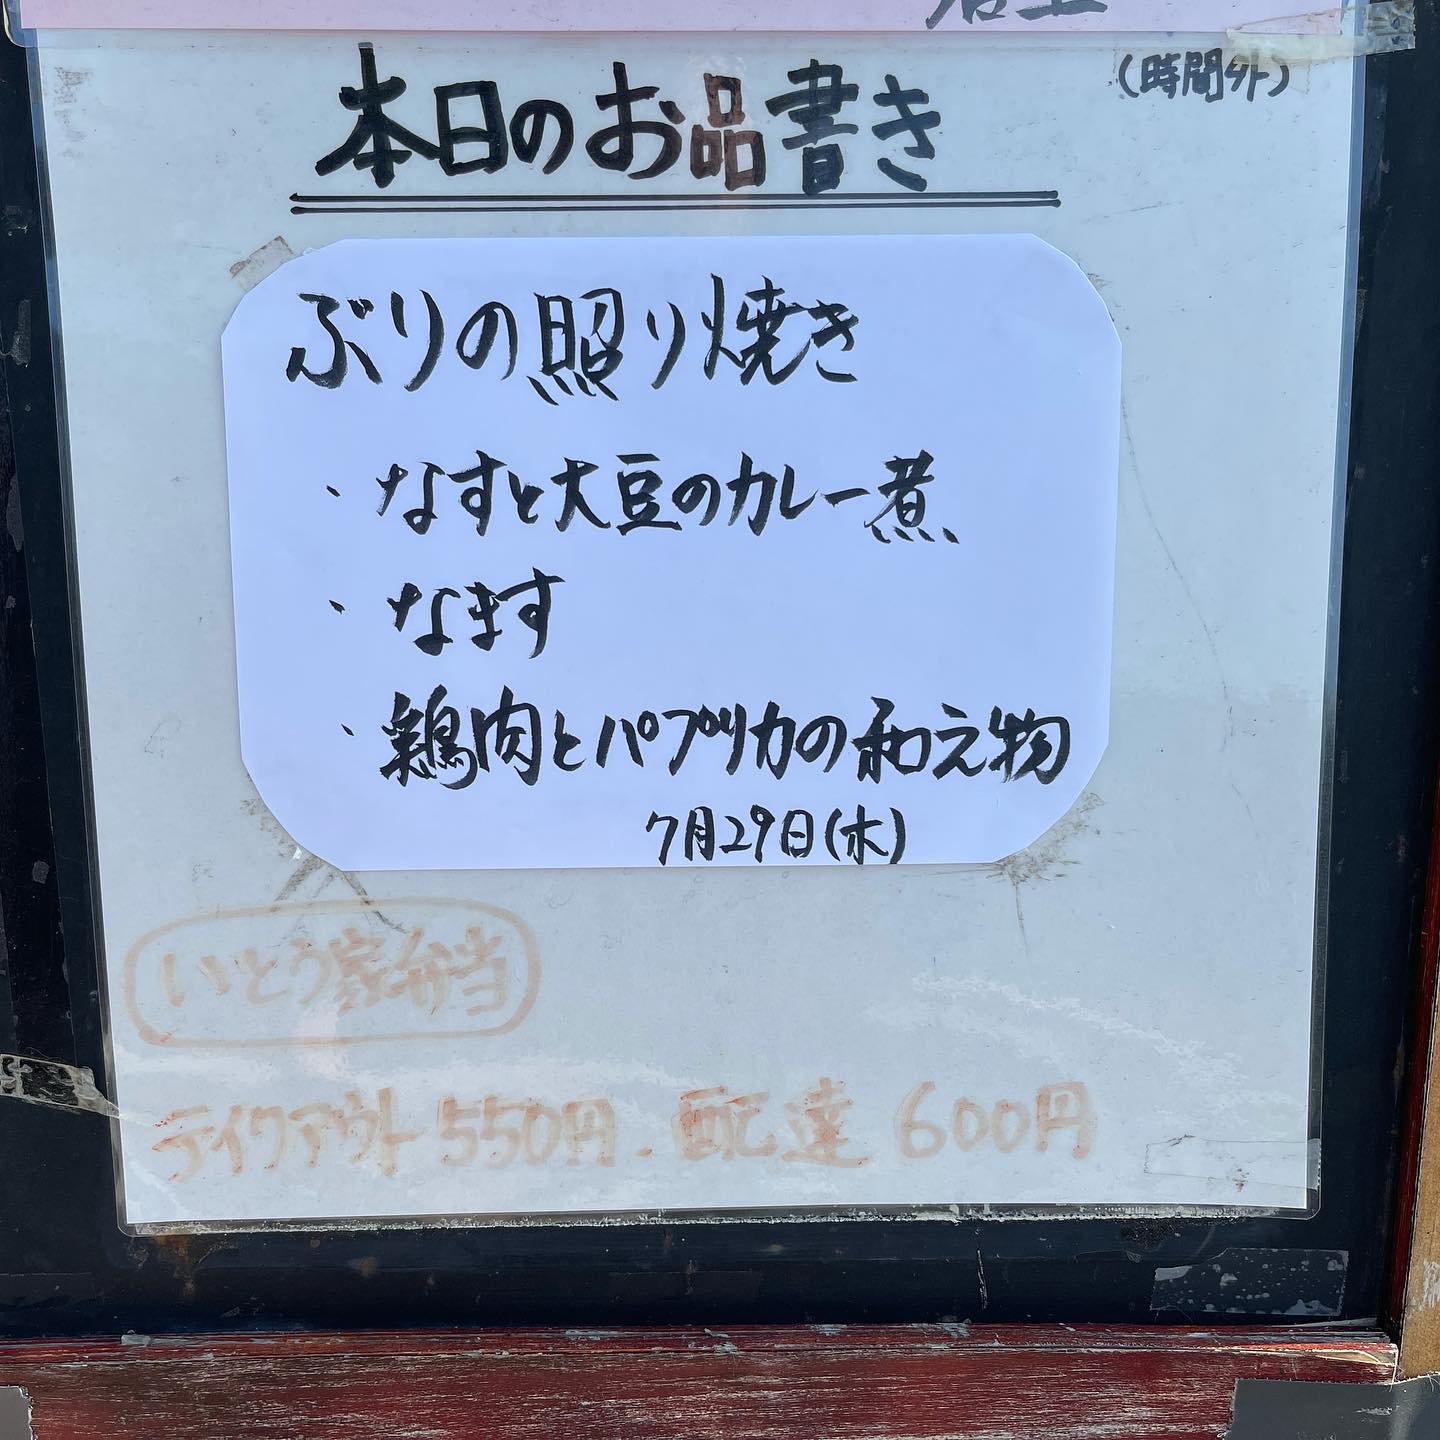 (時間外)
本日のお品書き
ぶりの照り焼き
・なすと大豆のカレー煮
・なます
・鶏肉とパプリカの和え物
7月29日(水)
いとう家弁当
テイクアウト 550円.配達 600円